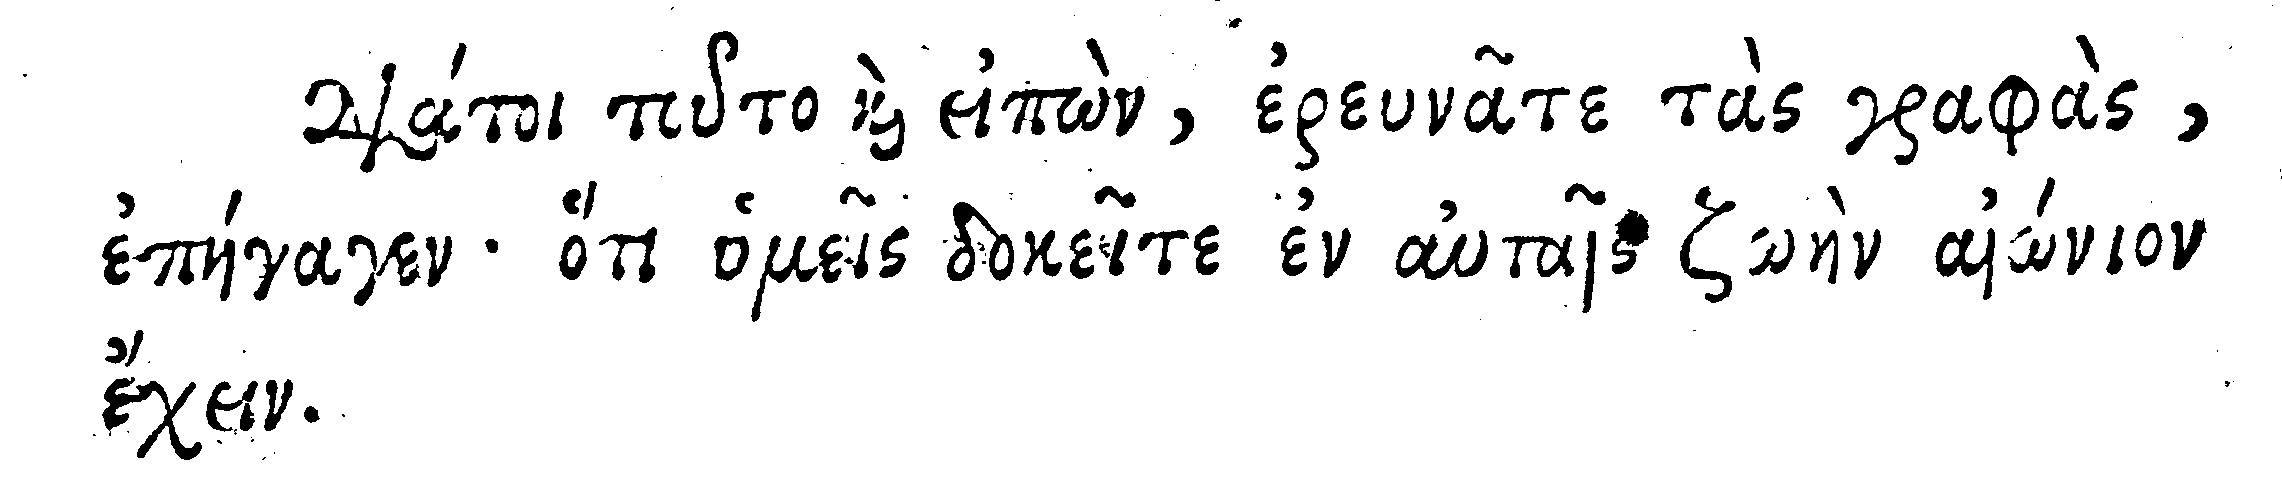 Διάτοι τοῦτο καὶ εἰπὼν, ἐρευνᾶτε τὰς γραφὰς,
ἐπήγαγεν· ὅτι ὑμεῖς δοκεῖτε ἐν αὐταῖς ζωὴν αἰώνιον
ἔχειν.